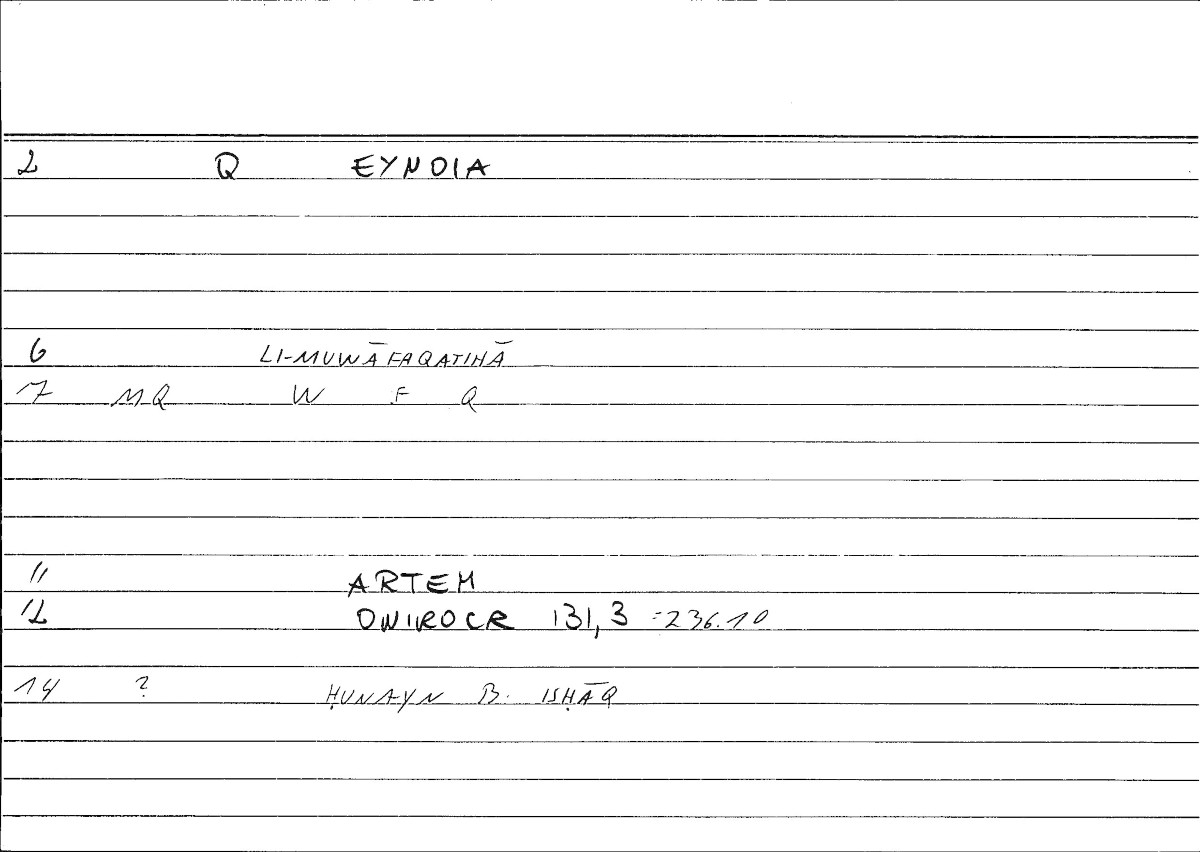 2 Q EYNOIA
6 LI-MUWĀFAQATIHĀ
7 MQ W F Q
11 ARTEM
12 ONIROCR 131,3 =236.10
14 ? ḤUNAYN B. ISḤĀQ